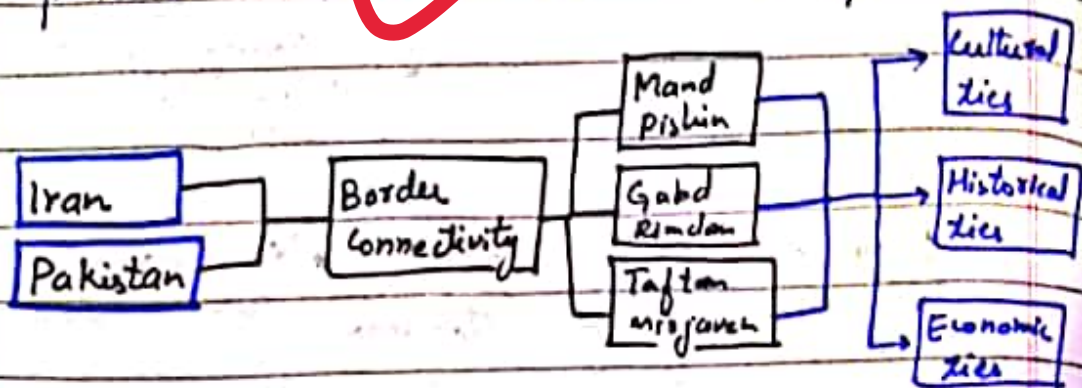 Iran
Pakistan
Border
Connectivity
Mand
Pishin
Gabd
Rimdan
Taftan
Mirjaveh
Cultural
ties
Historical
ties
Economic
ties